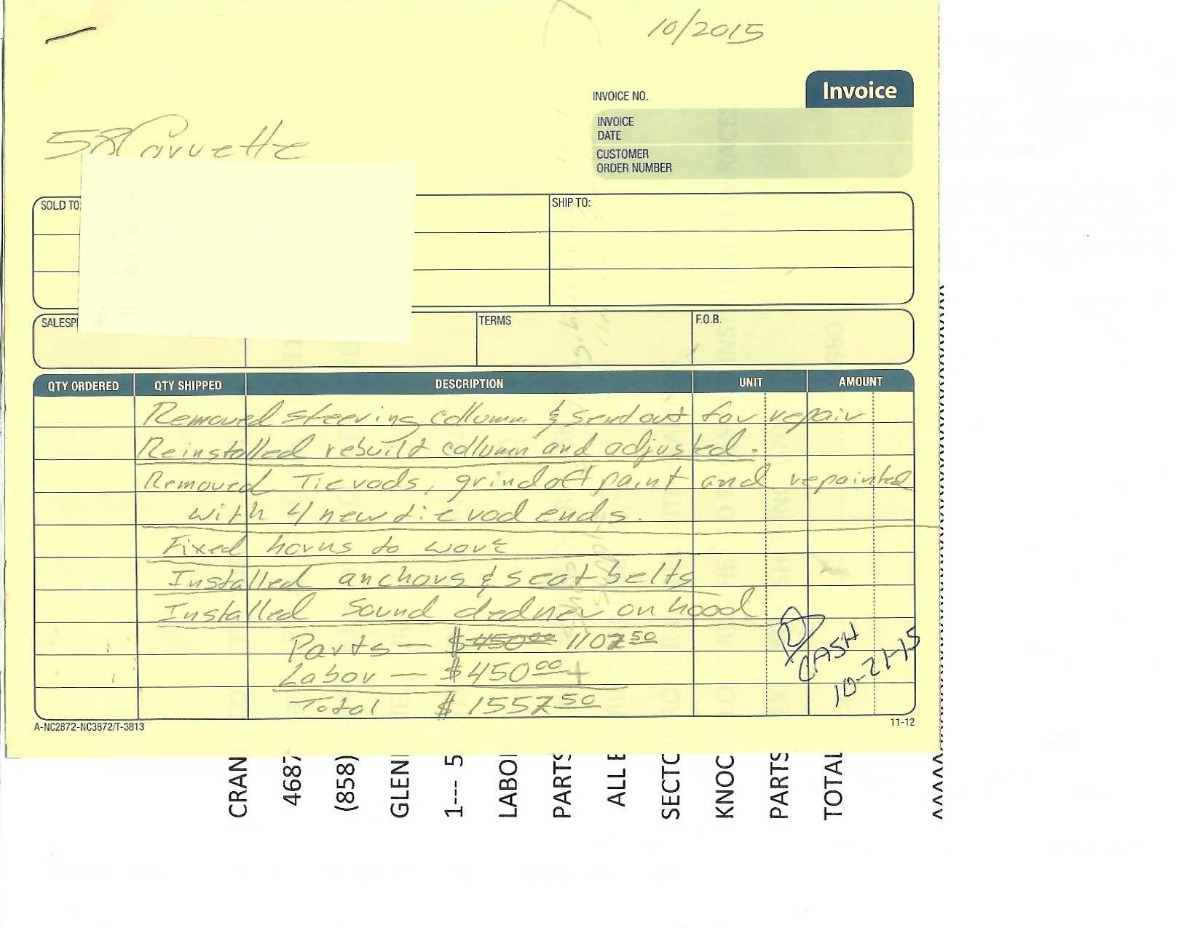 10/2015
Invoice
INVOICE NO.
INVOICE DATE
CUSTOMER ORDER NUMBER
58 Corvette
SOLD TO
SHIP TO:
SALESP
TERMS
F.O.B.
QTY ORDERED QTY SHIPPED DESCRIPTION UNIT AMOUNT
Removed steering collumn & send out for repair
Reinstalled rebuilt collumn and adjusted.
Removed Tie rods, grind off paint and repainted
with 4 new tie rod ends.
Fixed horns to work
Installed anchors & seat belts
Installed sound dedner on hood
Parts — $450.00 1107.50
Labor — $450.00 +
Total $1557.50
D
CASH
10-21-15
A-NC2872-NC3872/T-3813
11-12
CRAN
4687
(858)
GLEN
1--- 5
LABO
PARTS
ALL
SECTO
KNOC
PARTS
TOTAL